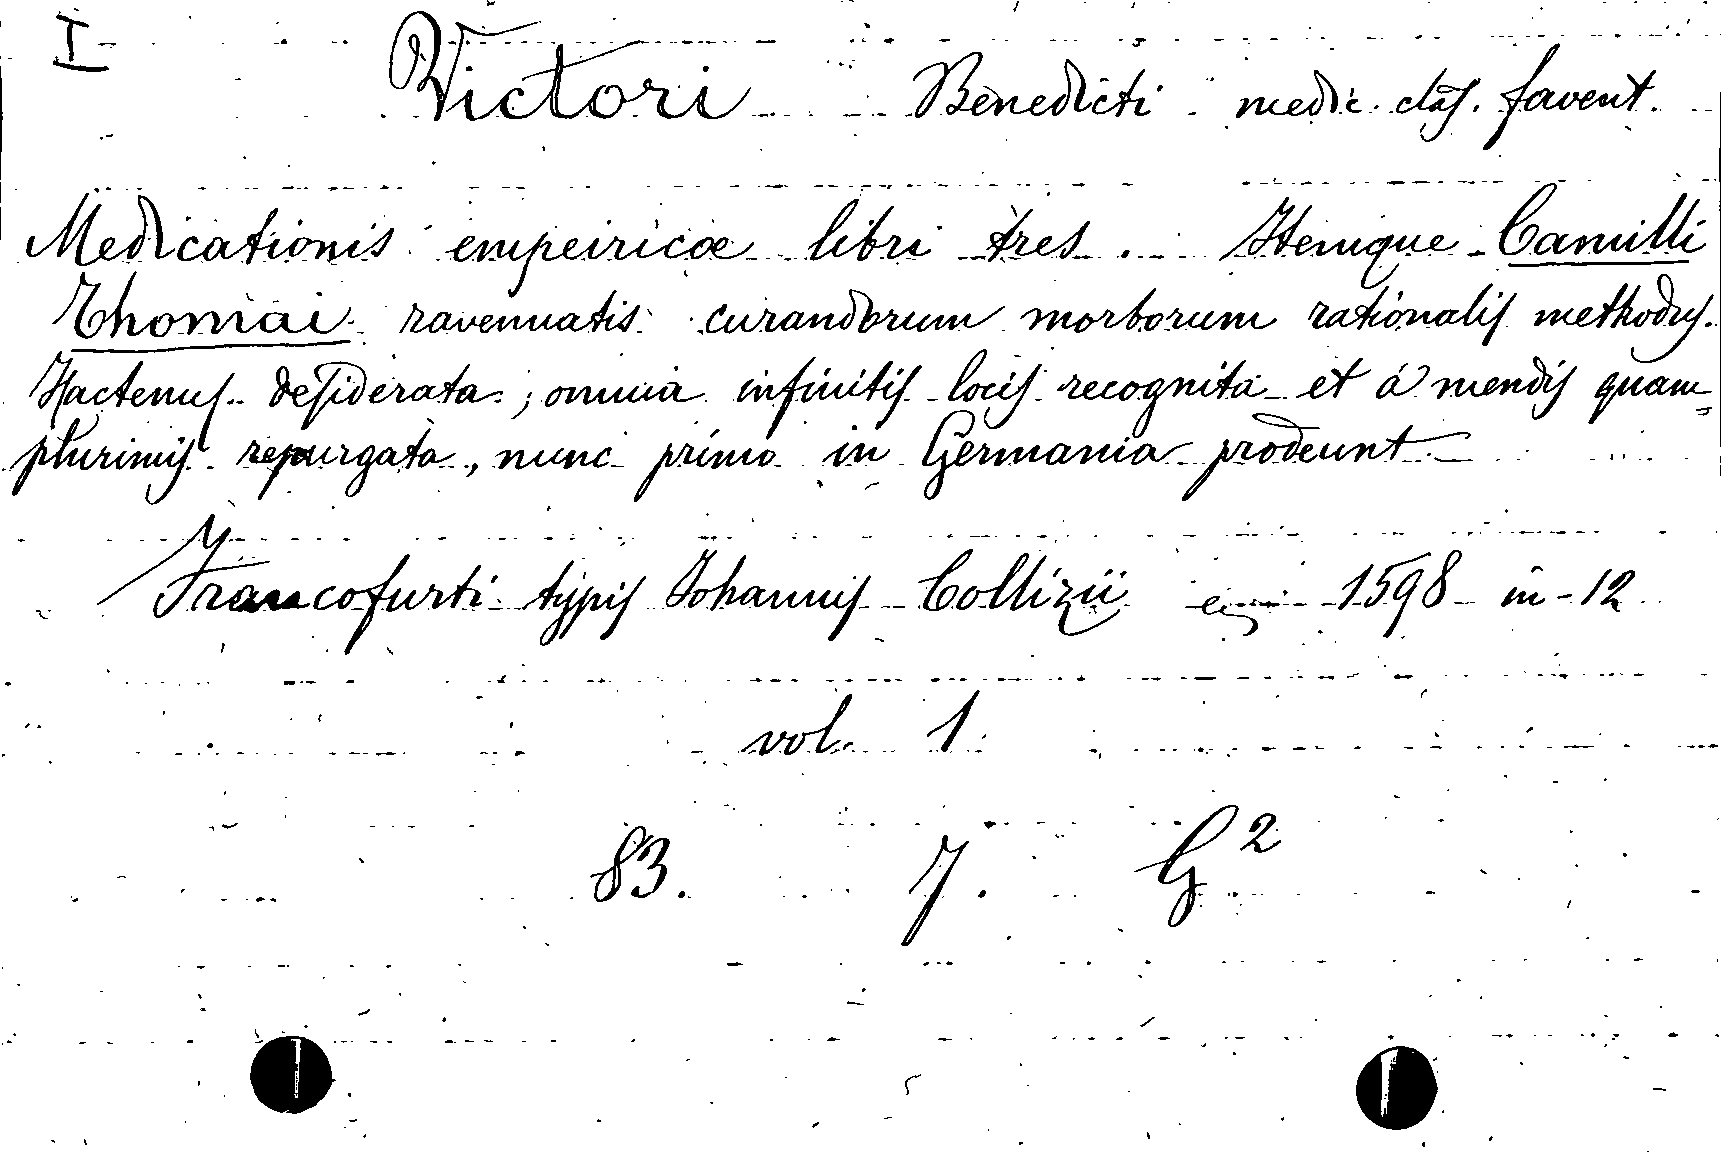 I Victori Benedicti medic. clas. favent.
Medicationis empeiricæ libri tres. Itemque Camilli
Thomai ravennatis curandorum morborum rationalis methodus.
Hactenus desiderata; omnia infinitis locis recognita et à mendis quam-
plurimis repurgata, nunc primo in Germania prodeunt
Francofurti typis Johannis Collizii 1598 in-12
vol. 1
83. 7. G²